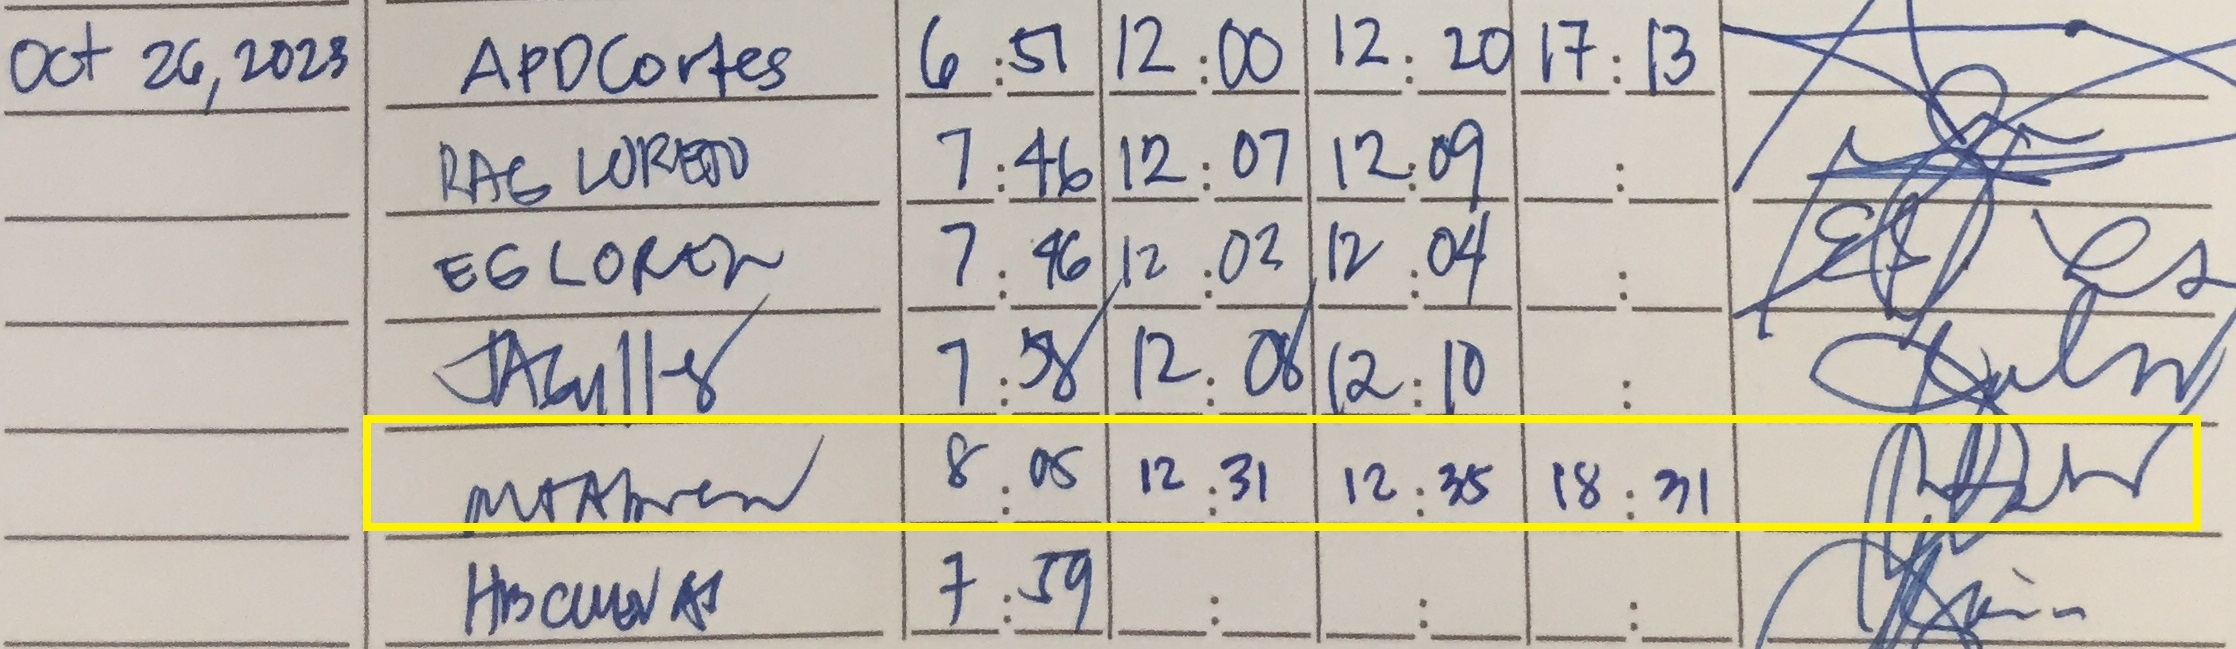 Oct 26, 2023 APDCortes 6:51 12:00 12:20 17:13
RAG LORETO 7:46 12:07 12:09 :
EG LOREN 7:46 12:03 12:04 :
7:58 12:08 12:10 :
8:05 12:31 12:35 18:31
7:59 : : :